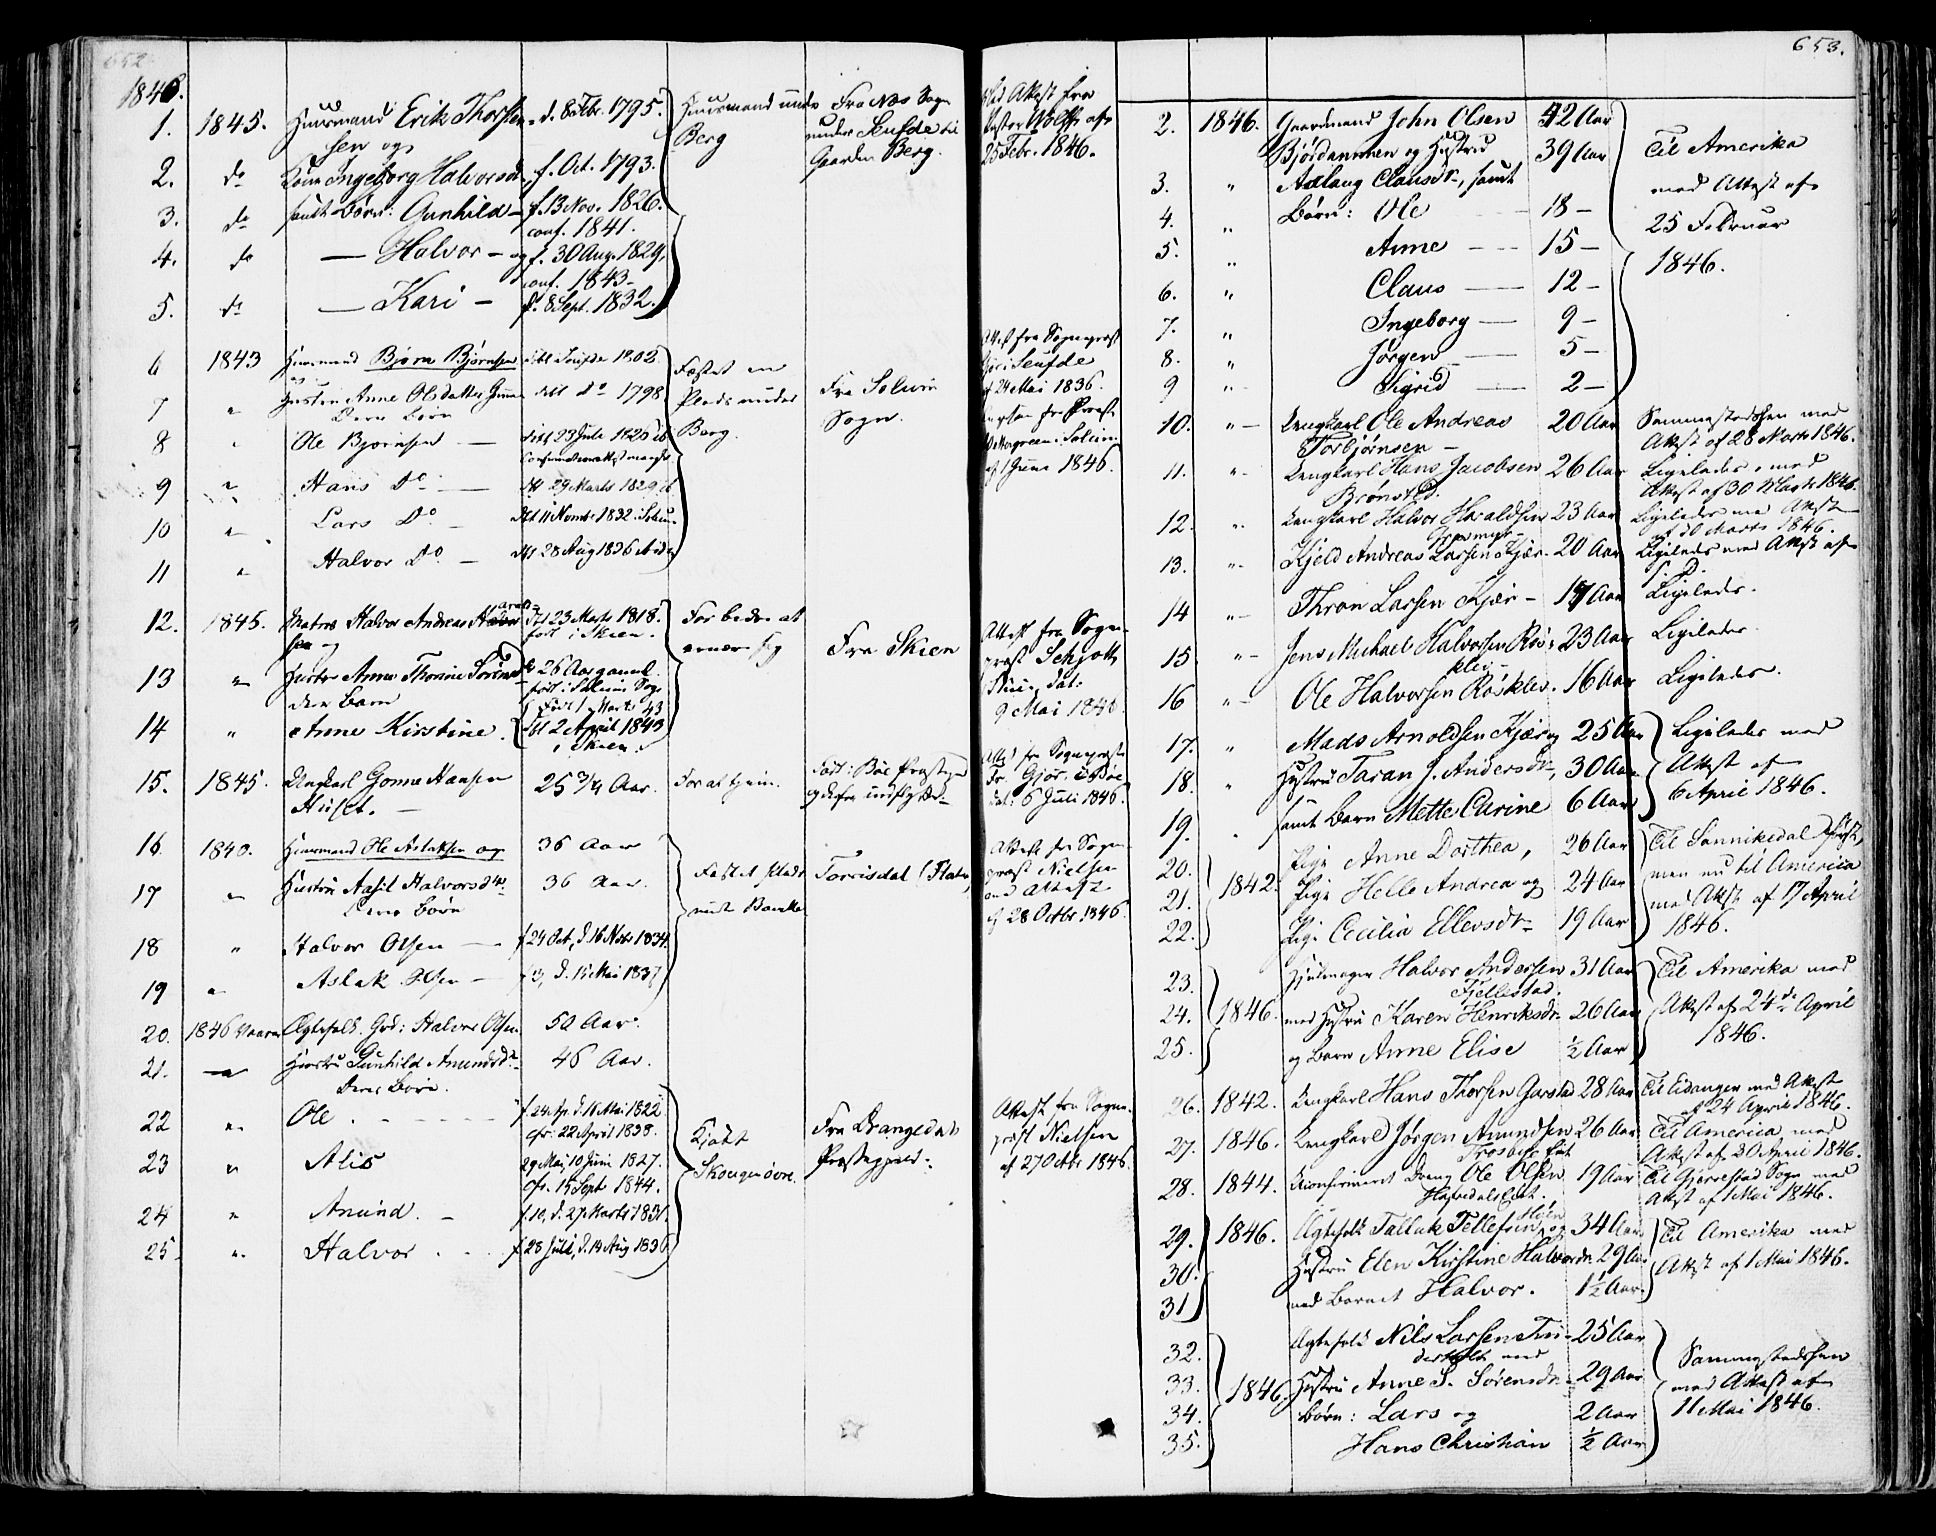 652
1846.
1. 1845. Huusmand Erik Thorsten- d. 8 Febr. 1795. Huusmand under Fra Næs Sogn
sen og Berg under Seufde til
2. do Kone Ingeborg Halvorsd. f. Oct. 1793. Gaarden Berg.
3. do samt Børn: Gunhild – f. 13 Nov. 1826.
conf. 1841.
4. do — Halvor – og f. 30 Aug. 1829,
conf. 1843 –
5. do — Kari – d. 8 Sept. 1832.
6 1843 Huusmand Bjørn Bjørnsen Seufde 1802 Fæstet en
7 " Hustru Anne Olsdatter do 1798 Plads under Fra Solum
Deres Børn Berg. Sogn.
8 " Ole Bjørnsen — 23 Juli 1826
9 " Hans Do — 29 Marts 1829
10 " Lars Do – 11 Novbr 1832 Solum
11 " Halvor Do – 28 Aug 1836
12. 1845. Halvor Andreas 23 Marts 1818. For bedre at
sen og født i Skien. ernære sig Fra Skien
13 " Hustru Anne Thorine 26 Aar gammel
deres Barn født i Solum Sogn
14 " Anne Kirstine. 2 April 1843
i Skien.
15. 1845. Ungkarl Gonne Hansen 25 3/4 Aar. For at tjene. Født i Bøe Præstegj
Huset. —
16 1840. Huusmand Ole Aslaksen og 36 Aar
17 " Hustru Aasil Halvorsdtr 36 Aar. Fæstet Plads Torrisdal
Deres Børn
18 " Halvor Olsen — f 24 Oct, d. 16 Novbr 1834.
19 " Aslak Olsen — d. 15 Mai 1837
20. 1846 Vaaren Ægtefolk. Grd: Halvor Olsen 50 Aar.
21. " Hustru Gunhild Amundsdtr 46 Aar.
Deres Børn.
22 " Ole f. 24 Ap. d. 16 Mai 1822
cfr. 22 April 1838. Kjøbt Fra Drangedals
23 " Alis 29 Mai, 10 Juni 1827. Skougen øvre. Præstegjeld.
Cfr. 15 Sept 1844.
24 " Amund. – f. 10, d. 27 Marts 1831.
25 " Halvor f 28 Juli, d. 14 Aug 1836
653.
Med Attest fra
Pastor Wolff af
25 Febr. 1846.
Attest fra Sognepræst
Seufde
af 24 Mai 1836.
Solum
af 1 Juni 1846.
Attest fra Sogne-
præst Schjøtt
Skien, dat:
9 Mai 1846.
Attest fra Sognepræst
Fr. Gjør. i Bøe
dat: 6 Juli 1846.
Attest fra Sogne
præst Nielsen
af 28 Octbr. 1846.
Attest fra Sogne-
præst Nielsen
af 27 Octbr 1846.
2. 1846. Gaardmand John Olsen 42 Aar
Bjørdammen og Hustru 39 Aar Til Amerika
3. " Aslaug Clausdr, samt med Attest af
4. " Børn: Ole — 18 – 25 Februar
5. " Anne — 15 – 1846.
6. " Claus — 12 –
7. " Ingeborg — 9 –
8. " Jørgen — 5 –
9 " Sigrid — 2 –
10. " Ungkarl Ole Andreas 20 Aar Sammestedshen med
Torbjørnsen – Attest af 28 Marts 1846.
11. " Ungkarl Hans Jacobsen 26 Aar Ligeledes, med
Brønsted. Attest af 30 Marts 1846.
12. " Ungkarl Halvor Haraldsen 23 Aar Ligeledes med Attest
af 30 Marts 1846.
13. " Kjeld Andreas Larsen Kjær. 20 Aar Ligeledes med Attest af
14 " Thron Larsen Kjær – 17 Aar Ligeledes.
15. " Jens Michael Halvorsen Røs- 23 Aar Ligeledes.
klev –
16 " Ole Halvorsen Røsklev. 16 Aar Ligeledes.
17. " Mads Arnoldsen Kjær og 25 Aar Ligeledes med
18. " Hustru Taran J. Andersdr. 30 Aar Attest af
19. " samt Barn Mette Carine 6 Aar 6 April 1846.
20. Pige Anne Dorthea, 26 Aar Til Sannikedal først,
21. 1842. Pige Helle Andrea og 24 Aar men nu til America
22. Pige Cecilia Ellevsdr 19 Aar med Attest af 17 April
1846.
23. Hjulmager Halvor Andersen 31 Aar Til Amerika med
Fjellestad.
24. 1846. med Hustru Karen Henriksdr. 26 Aar Attest af 24de April
25. og Barn Anne Elise 1/2 Aar 1846.
26. 1842. Ungkarl Hans Thorsen Garstad 28 Aar Til Eidanger med Attest
af 24 April 1846.
27. 1846. Ungkarl Jørgen Amundsen 26 Aar Til America med
Attest af 30 April 1846.
28. 1844. Uconfirmeret Dreng Ole Olsen 19 Aar Til Gjerrestad Sogn med
Attest af 1 Mai 1846.
29. 1846. Ægtefolk Tallak Tellefsen og 34 Aar Til Amerika med
30. Hustru Elen Kirstine Halvorsdr. 29 Aar Attest af 1 Mai 1846.
31 med Barnet Halvor. 1 1/2 Aar.
32. Ægtefolk Nils Larsen Tin- 25 Aar
derholt med Sammestedshen
33. 1846. Hustru Anne S. Sørensdr. 29 Aar med Attest af
34. Børn: Lars og 2 Aar 11 Mai 1846.
35. Hans Christian 1/2 Aar